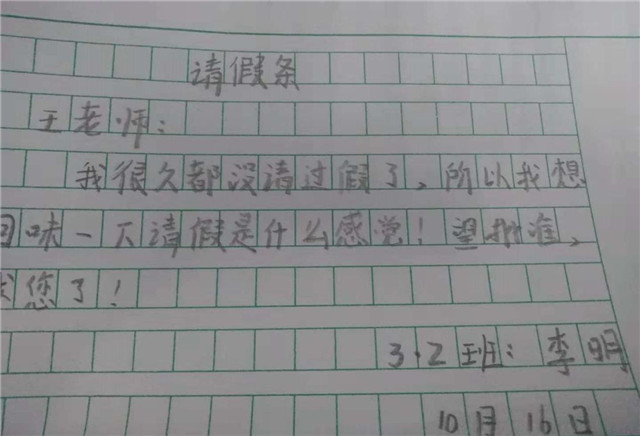 请假条
王老师：
我很久都没请过假了，所以我想
回味一下请假是什么感觉！望批准，
求您了！
3.2班：李明
10月16日